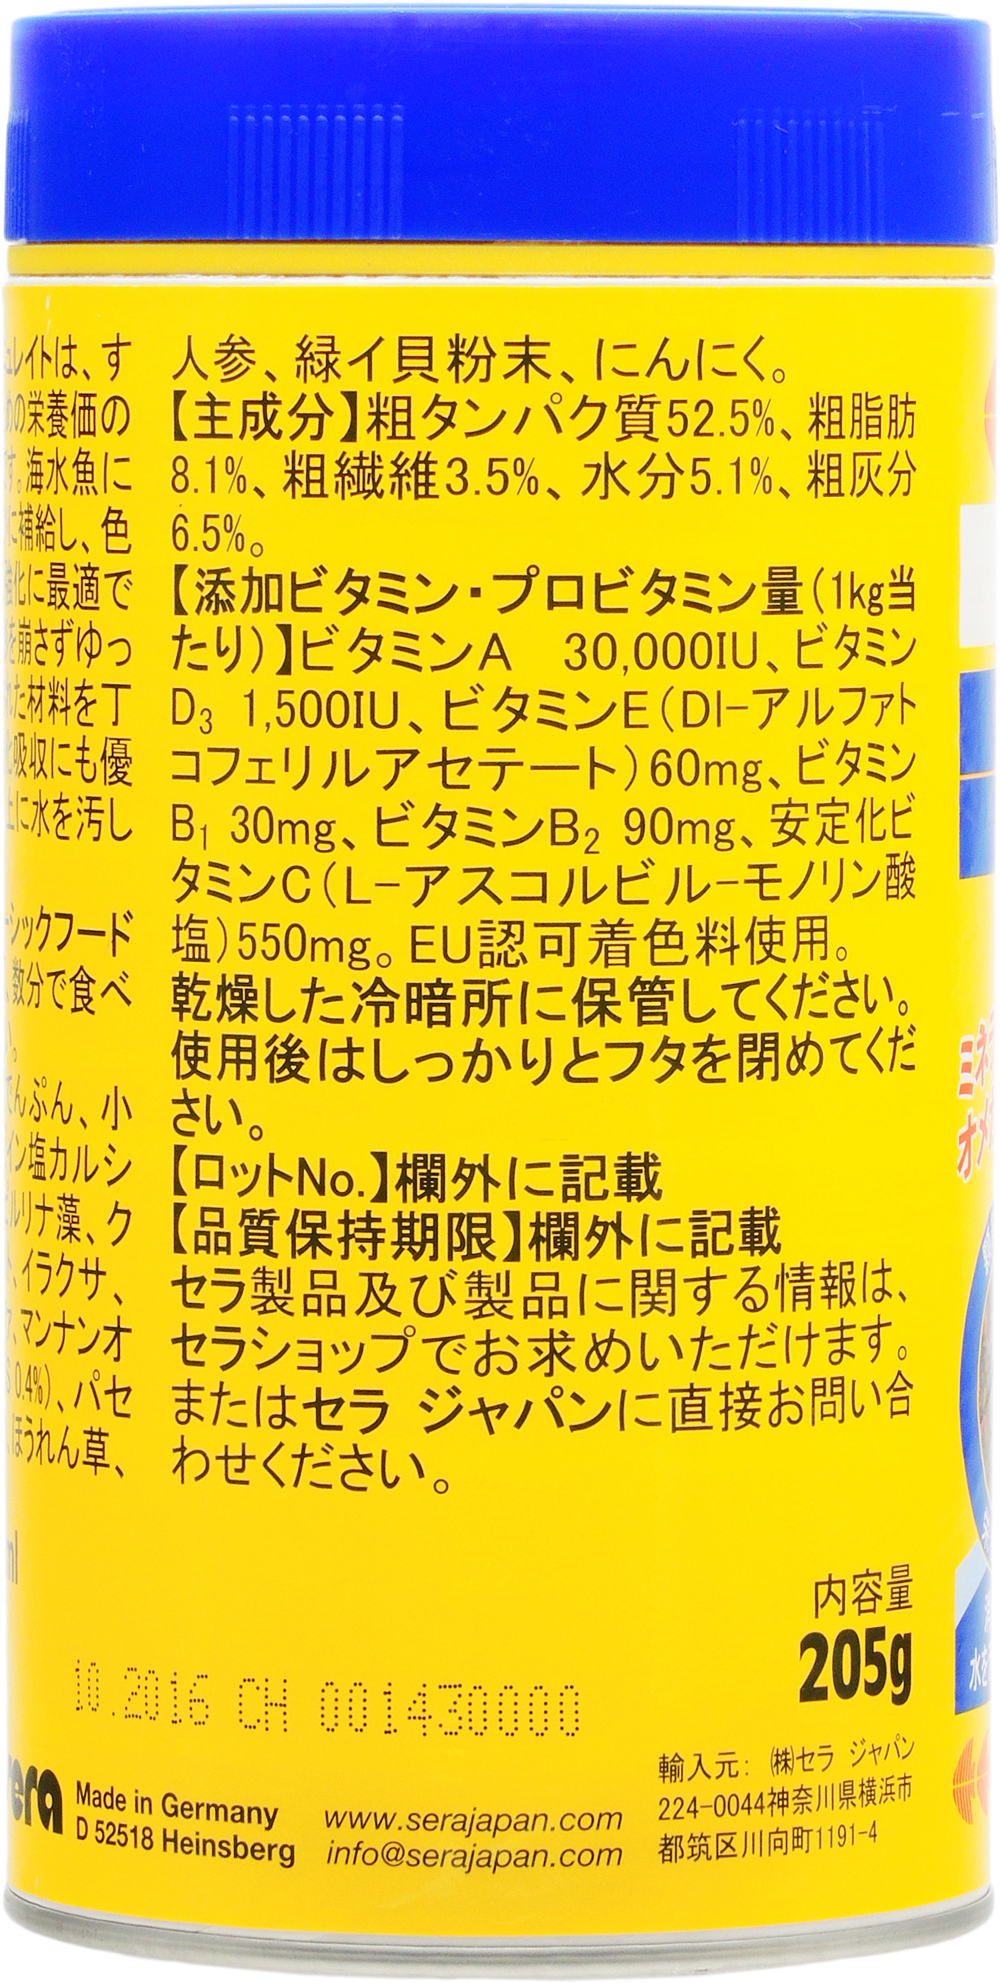 人参、緑イ貝粉末、にんにく。
【主成分】粗タンパク質52.5%、粗脂肪
8.1%、粗繊維3.5%、水分5.1%、粗灰分
6.5%。
【添加ビタミン・プロビタミン量(1kg当
たり)】ビタミンA　30,000IU、ビタミン
D3 1,500IU、ビタミンE(Dl-アルファト
コフェリルアセテート)60mg、ビタミン
B1 30mg、ビタミンB2 90mg、安定化ビ
タミンC(L-アスコルビル-モノリン酸
塩)550mg。EU認可着色料使用。
乾燥した冷暗所に保管してください。
使用後はしっかりとフタを閉めてくだ
さい。
【ロットNo.】欄外に記載
【品質保持期限】欄外に記載
セラ製品及び製品に関する情報は、
セラショップでお求めいただけます。
またはセラ ジャパンに直接お問い合
わせください。
レイトは、す
の栄養価の
海水魚に
補給し、色
化に最適で
崩さずゆっ
た材料を丁
吸収にも優
に水を汚し
シックフード
数分で食べ
でんぷん、小
イン塩カルシ
ルリナ藻、ク
、イラクサ、
、マンナンオ
0.4%)、パセ
ほうれん草、
ml
内容量
205g
10.2016 CH 001430000
sera
Made in Germany
D 52518 Heinsberg
www.serajapan.com
info@serajapan.com
輸入元: ㈱セラ ジャパン
224-0044神奈川県横浜市
都筑区川向町1191-4
ミネ
オメ
水を